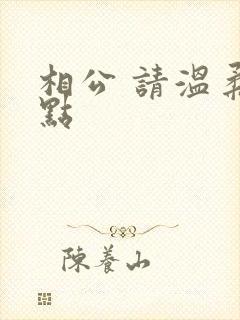 相公 請溫柔
點
陳養山